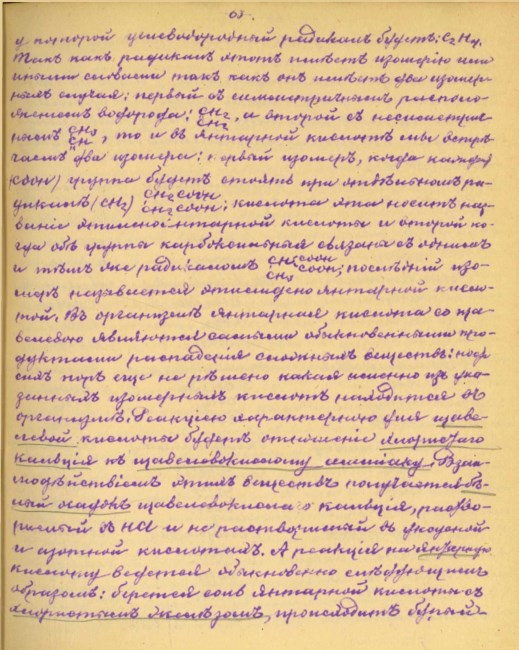 63.
у которой углеводородный радикалъ будетъ: C₂H₄.
Такъ какъ радикалъ этотъ имѣетъ изомерію или
иными словами такъ какъ онъ имѣетъ два изомер-
ныхъ случая: первый съ симметричнымъ располо-
женіемъ водорода: CH₂ CH₂, а второй съ несимметрич-
нымъ CH₃ CH, то и въ янтарной кислотѣ мы встрѣ-
чаемъ два изомера: первый изомеръ, когда каждая
(COOH) группа будетъ стоять при отдѣльномъ ра-
дикалѣ (CH₂) CH₂COOH CH₂COOH; кислота эта носитъ наз-
ваніе этиленоянтарной кислоты и второй ко-
гда обѣ группы карбоксильныя связаны съ однимъ
и тѣмъ же радикаломъ CH COOH COOH CH₃; послѣдній изо-
меръ называется этилидено янтарной кисло-
той. Въ организмѣ янтарная кислота со ща-
велевою являются самыми обыкновенными про-
дуктами распаденія сложныхъ веществъ: но до
сихъ поръ еще не рѣшено какая именно изъ ука-
занныхъ изомерныхъ кислотъ находится въ
организмѣ. Реакціею характерною для щаве-
левой кислоты будетъ отношеніе хлористаго
кальція къ щавелевокислому амміаку. Взаи-
модѣйствіемъ этихъ веществъ получается бѣ-
лый осадокъ щавелевокислаго кальція, раство-
римый въ HCl и не растворимый въ уксусной
и азотной кислотахъ. А реакція на янтарную
кислоту ведется обыкновенно слѣдующимъ
образомъ: берется соль янтарной кислоты съ
хлористымъ желѣзомъ, происходитъ бурый